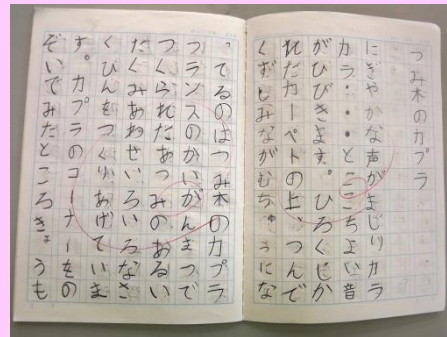 つみ木のカプラ
にぎやかな声がまじりカラ
カラ・・・とここちよい音
がひびきます。ひろくじか
れたカーペットの上、つんで
くずしみながむちゅうにな
ってるのはつみ木のカプラ
フランスのかいがんまつで
つくられたあつみのあるい
たくみあわせいろいろなさ
くひんをつくりあげていま
す。カプラのコーナーをの
ぞいてみたところきょうも